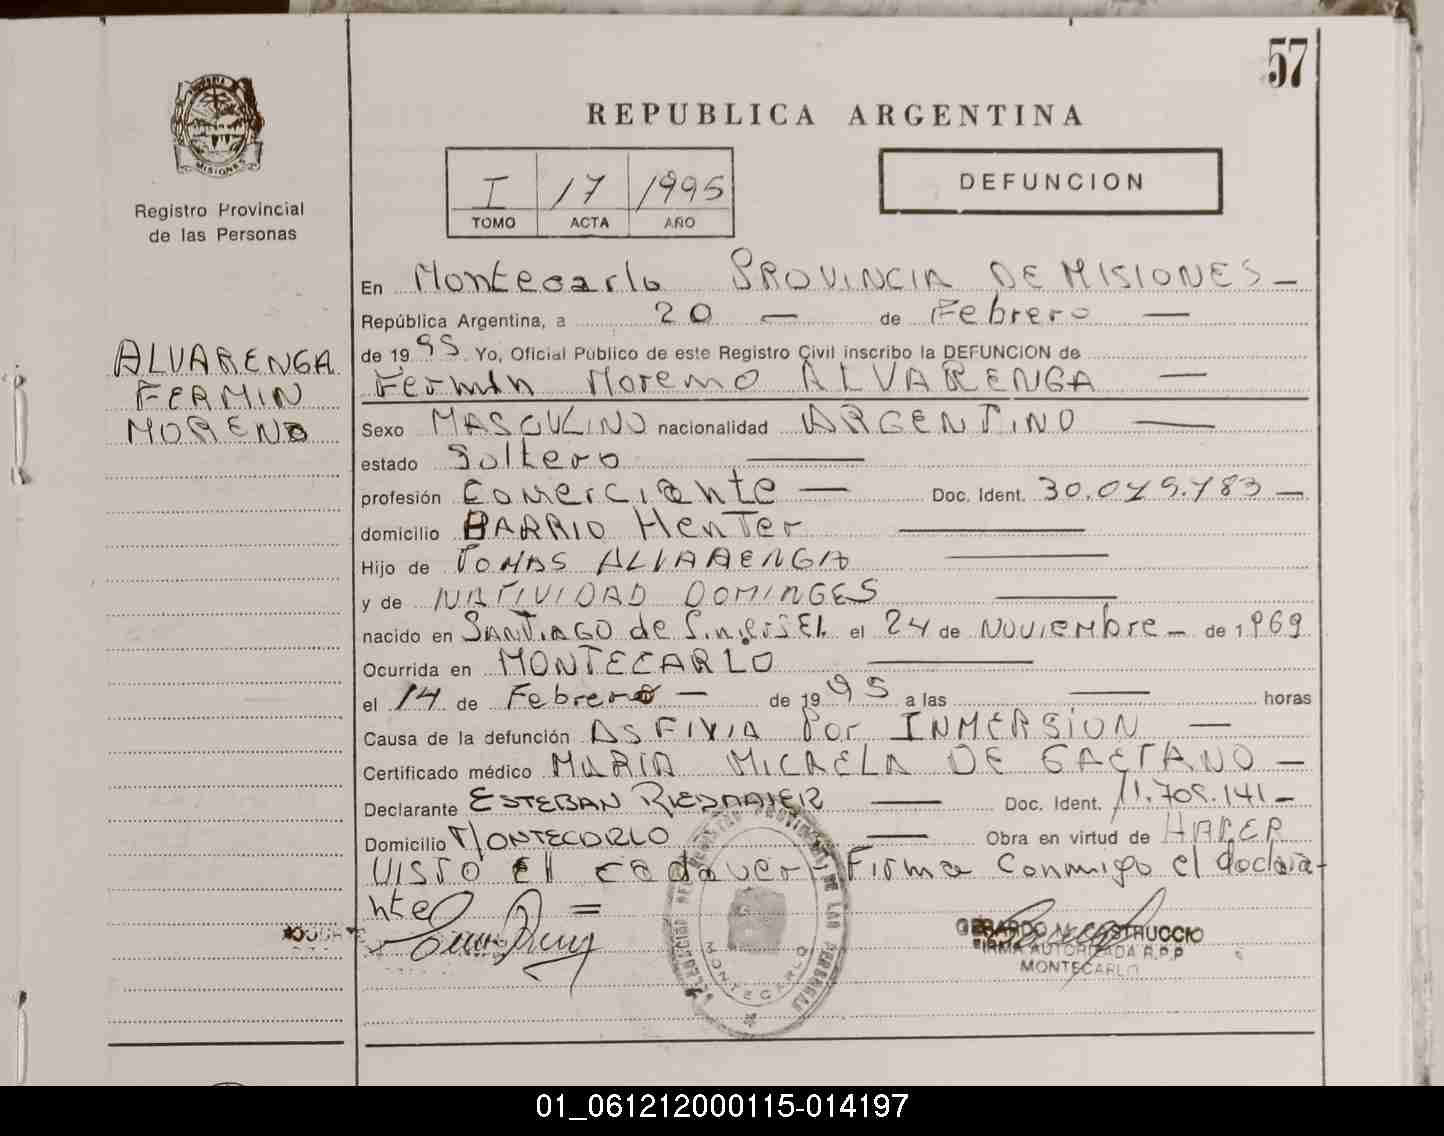 57
MISIONES
Registro Provincial
de las Personas
ALVARENGA
FERMIN
MORENO
REPUBLICA ARGENTINA
I 17 1995
TOMO ACTA AÑO
DEFUNCION
En Montecarlo PROVINCIA DE MISIONES
República Argentina, a 20 de Febrero
de 1995 Yo, Oficial Público de este Registro Civil inscribo la DEFUNCION de
Fermin Moreno ALVARENGA
Sexo MASCULINO nacionalidad ARGENTINO
estado Soltero
profesión Comerciante Doc. Ident.
domicilio BARRIO Henter
Hijo de TOMAS ALVARENGA
y de NATIVIDAD DOMINGES
nacido en SANTIAGO de el 24 de NOVIEMbre de 1969
Ocurrida en MONTECARLO
el 14 de Febrero de 1995 a las horas
Causa de la defunción ASFIXIA Por INMERSION
Certificado médico MARIA MICAELA DE GAETANO
Declarante ESTEBAN Doc. Ident. 11.705.141
Domicilio MONTECARLO Obra en virtud de HABER
VISTO El cadaver. Firma Conmigo el declara-
nte
MONTECARLO
GERARDO N. CASTRUCCIO
FIRMA AUTORIZADA R.P.P
MONTECARLO
01_061212000115-014197